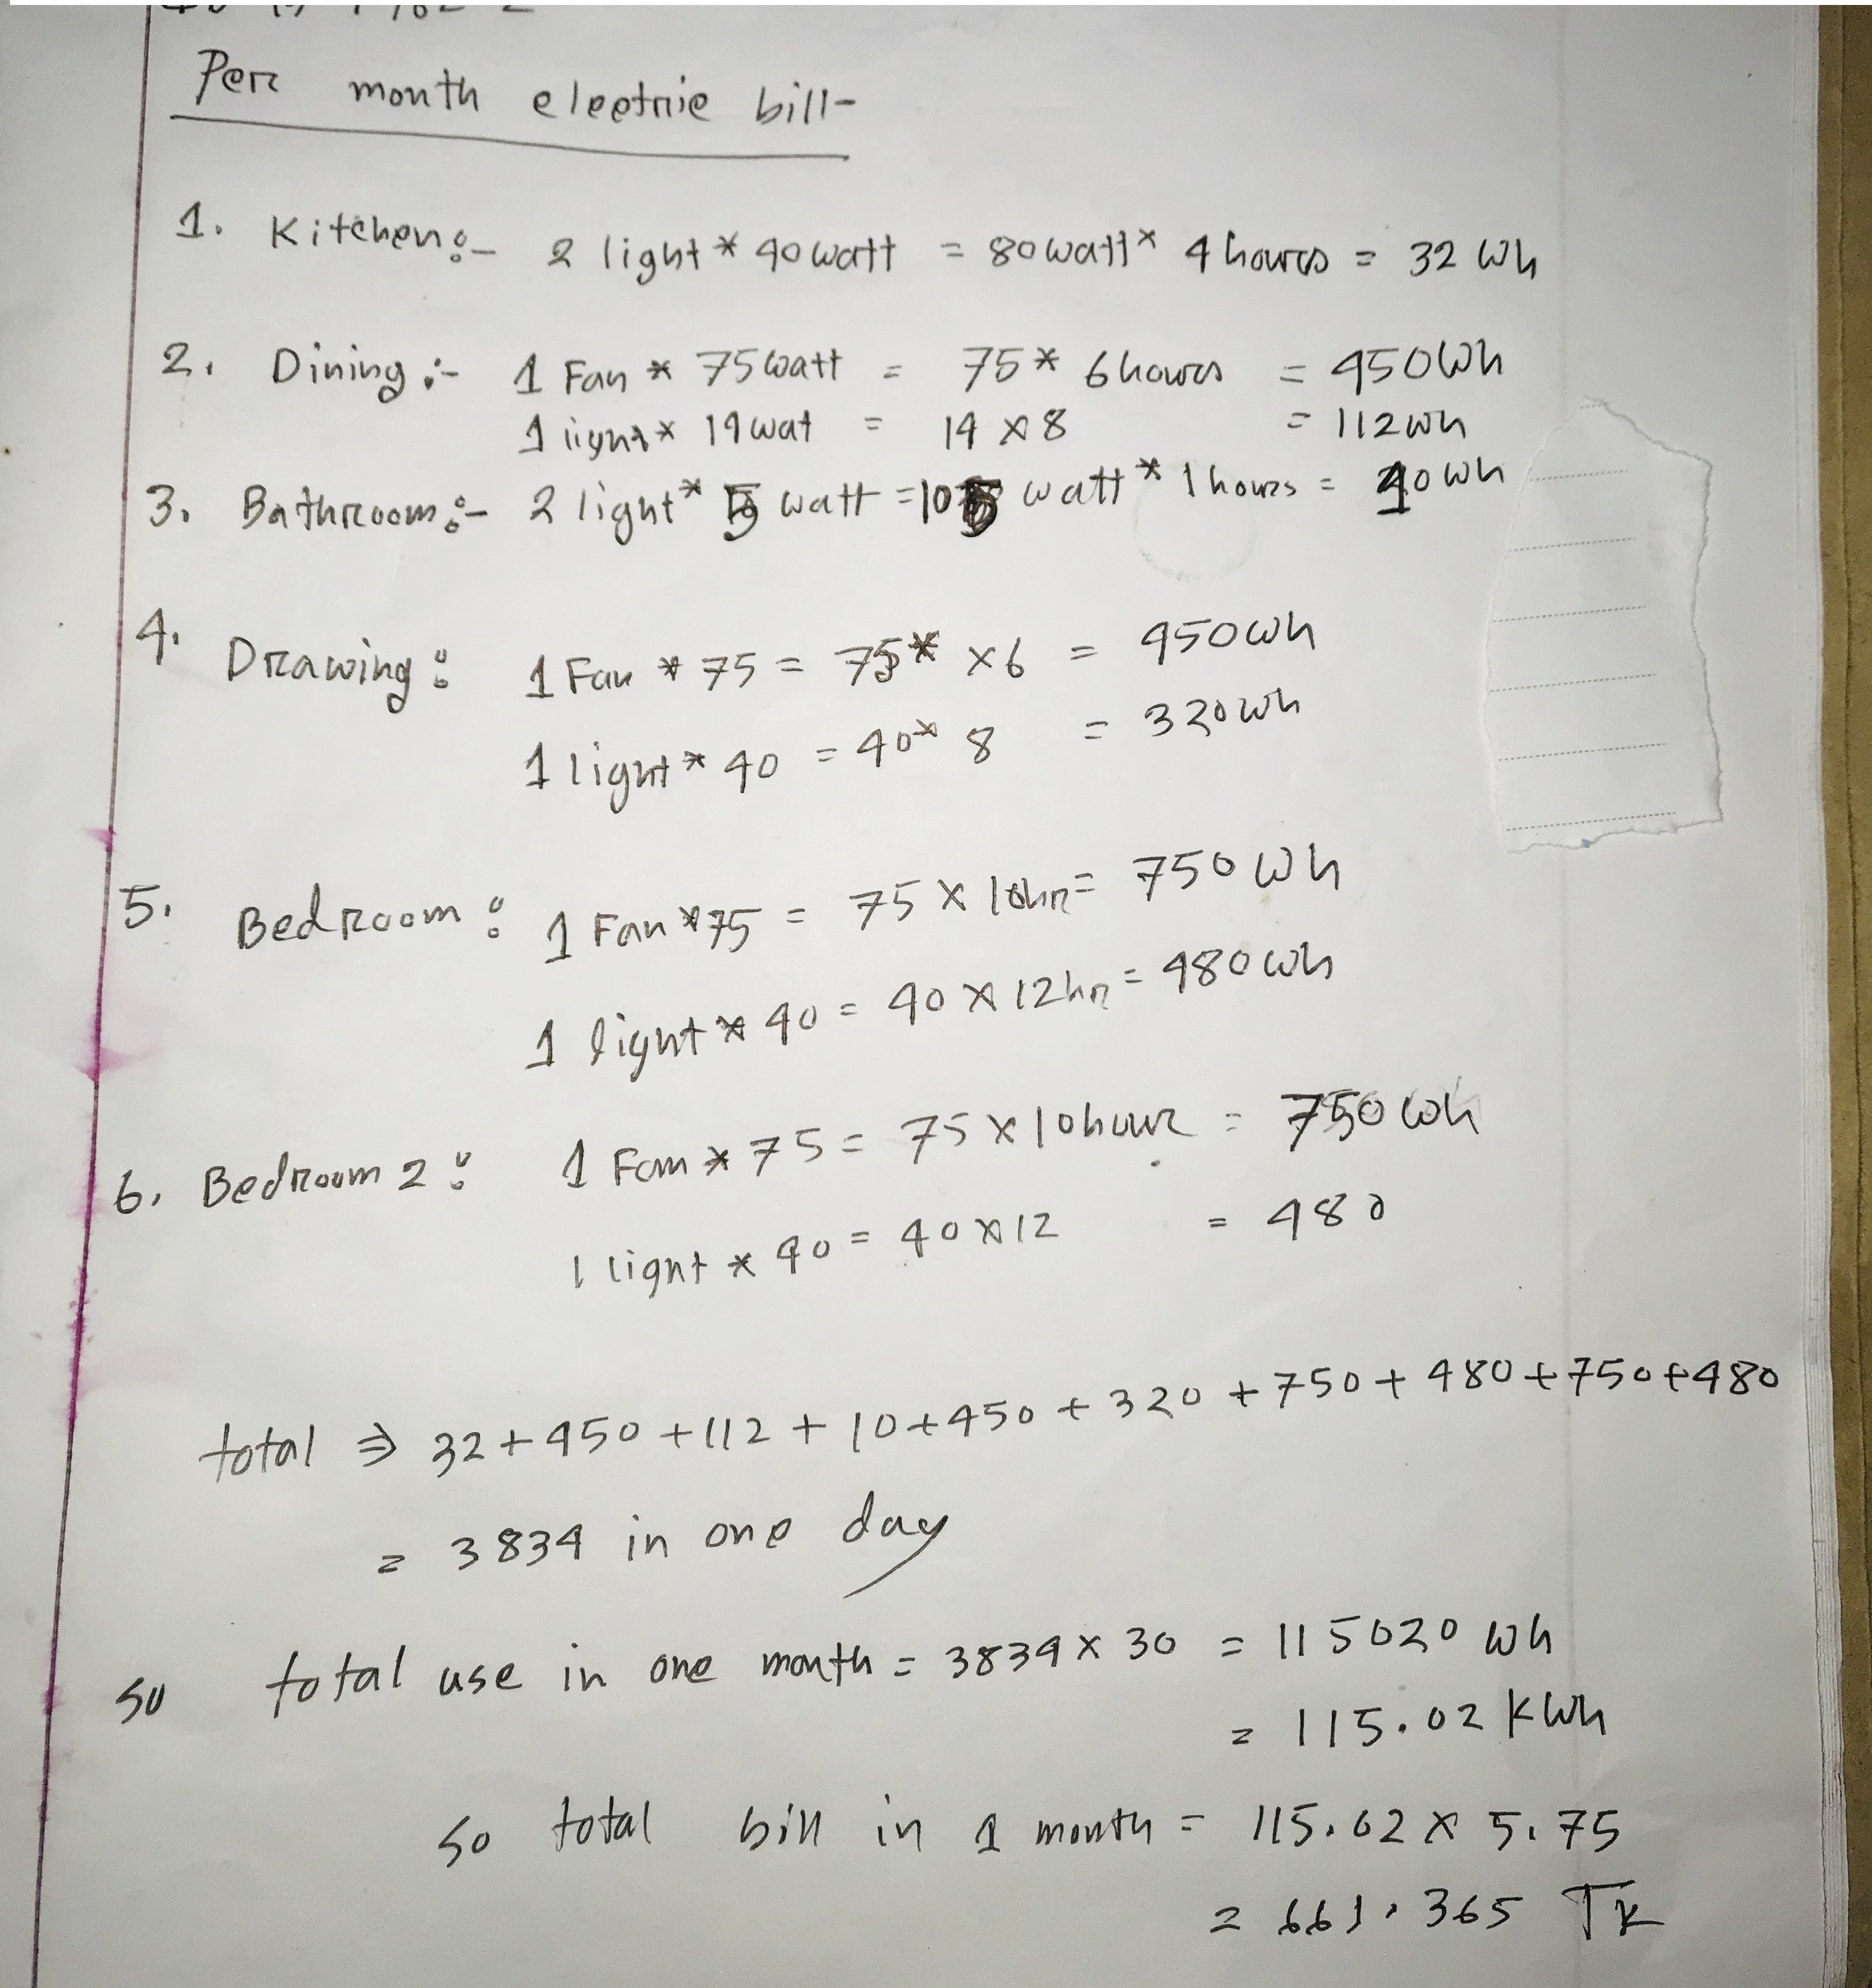 Per month electric bill-
1. Kitchen:- 2 light * 40 watt = 80 watt * 4 hours = 32 Wh
2. Dining:- 1 Fan * 75 watt = 75 * 6 hours = 450 Wh
1 light * 14 wat = 14 x 8 = 112 wh
3. Bathroom:- 2 light * 5 watt = 10 watt * 1 hours = 10 wh
4. Drawing: 1 Fan * 75 = 75* x6 = 450 wh
1 light * 40 = 40 * 8 = 320 wh
5. Bedroom: 1 Fan * 75 = 75 x 10hr = 750 Wh
1 light * 40 = 40 x 12hr = 480 wh
6. Bedroom 2: 1 Fan * 75 = 75 x 10 hour = 750 wh
1 light * 40 = 40 x 12 = 480
total ⇒ 32 + 450 + 112 + 10 + 450 + 320 + 750 + 480 + 750 + 480
= 3834 in one day
so total use in one month = 3834 x 30 = 115020 wh
= 115.02 kWh
so total bill in 1 month = 115.02 x 5.75
= 661.365 Tk